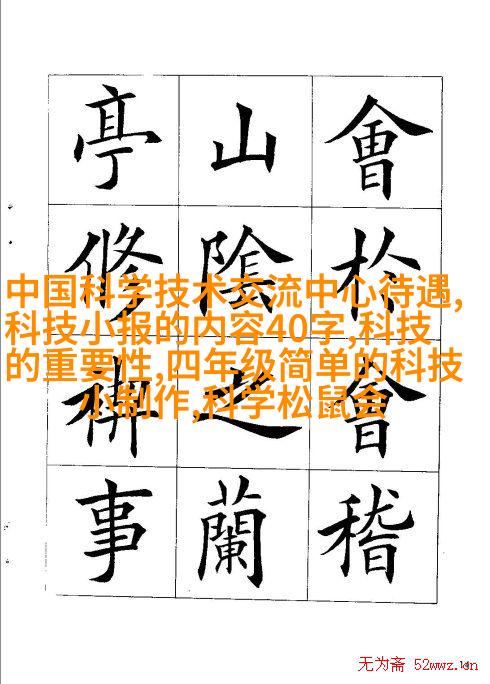 會於會稽
山陰之蘭
亭修禊事
中国科学技术交流中心待遇,
科技小报的内容40字,科技
的重要性,四年级简单的科技
小制作,科学松鼠会
无为斋 52wwz.cn